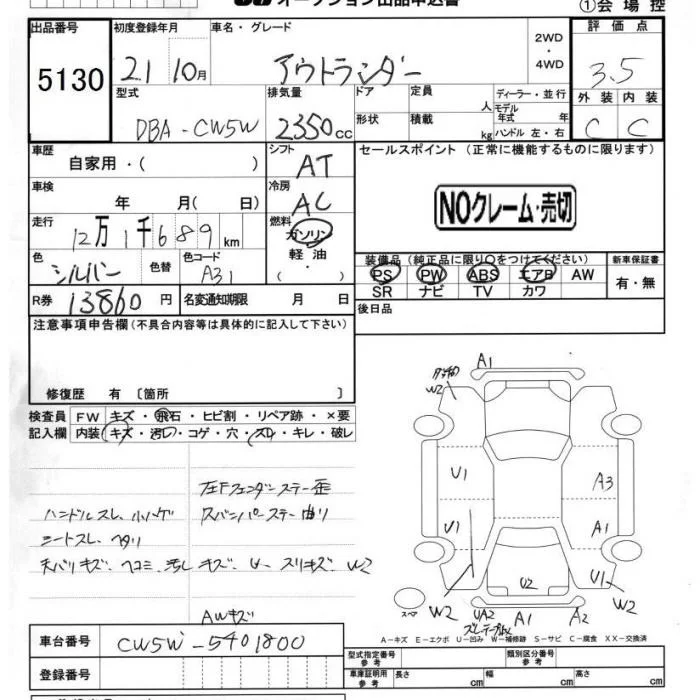 オークション出品申込書
①会 場 控
出品番号
5130
初度登録年月
21 10月
車名・グレード
アウトランダー
2WD
・
4WD
評 価 点
3.5
外 装 内 装
C C
型式
DBA-CW5W
排気量
2350cc
ドア
形状
定員 人
積載 kg
ディーラー・並行
モデル
年式 年
ハンドル 左・右
車歴
自家用・( )
シフト
AT
セールスポイント (正常に機能するものに限ります)
NOクレーム・売切
車検
年 月( 日)
冷房
AC
走行
12万1千689km
燃料
ガソリン
軽 油
・
( )
色
シルバー
色替
色コード
A31
装備品 (純正品に限り○をつけてください)
PS PW ABS エアB AW
SR ナビ TV カワ
新車保証書
有・無
R券 13860円
名変通知期限 月 日
後日品
注意事項申告欄(不具合内容等は具体的に記入して下さい)
修復歴 有 〔箇所 〕
検査員
記入欄
FW キズ・飛石・ヒビ割・リペア跡・×要
内装 キズ・汚れ・コゲ・穴・スレ・キレ・破レ
左Fフェンダーステー歪
ハンドルスレ、小ハゲ
スバンパーステー曲り
シートスレ、ヘタリ
天バリキズ、ヘコミ、汚レ
キズ、U、スリキズ、W2
AWキズ
A1
W2
U1
A3
U1
A1
U1
W2
W2
U2
UA2
A1
A2
スペア
A-キズ E-エクボ U-凹み W-補修跡 S-サビ C-腐食 XX-交換済
車台番号
CW5W-5401800
登録番号
型式指定番号
参考
類別区分番号
参考
車庫証明用
参考
長さ cm
幅 cm
高さ cm